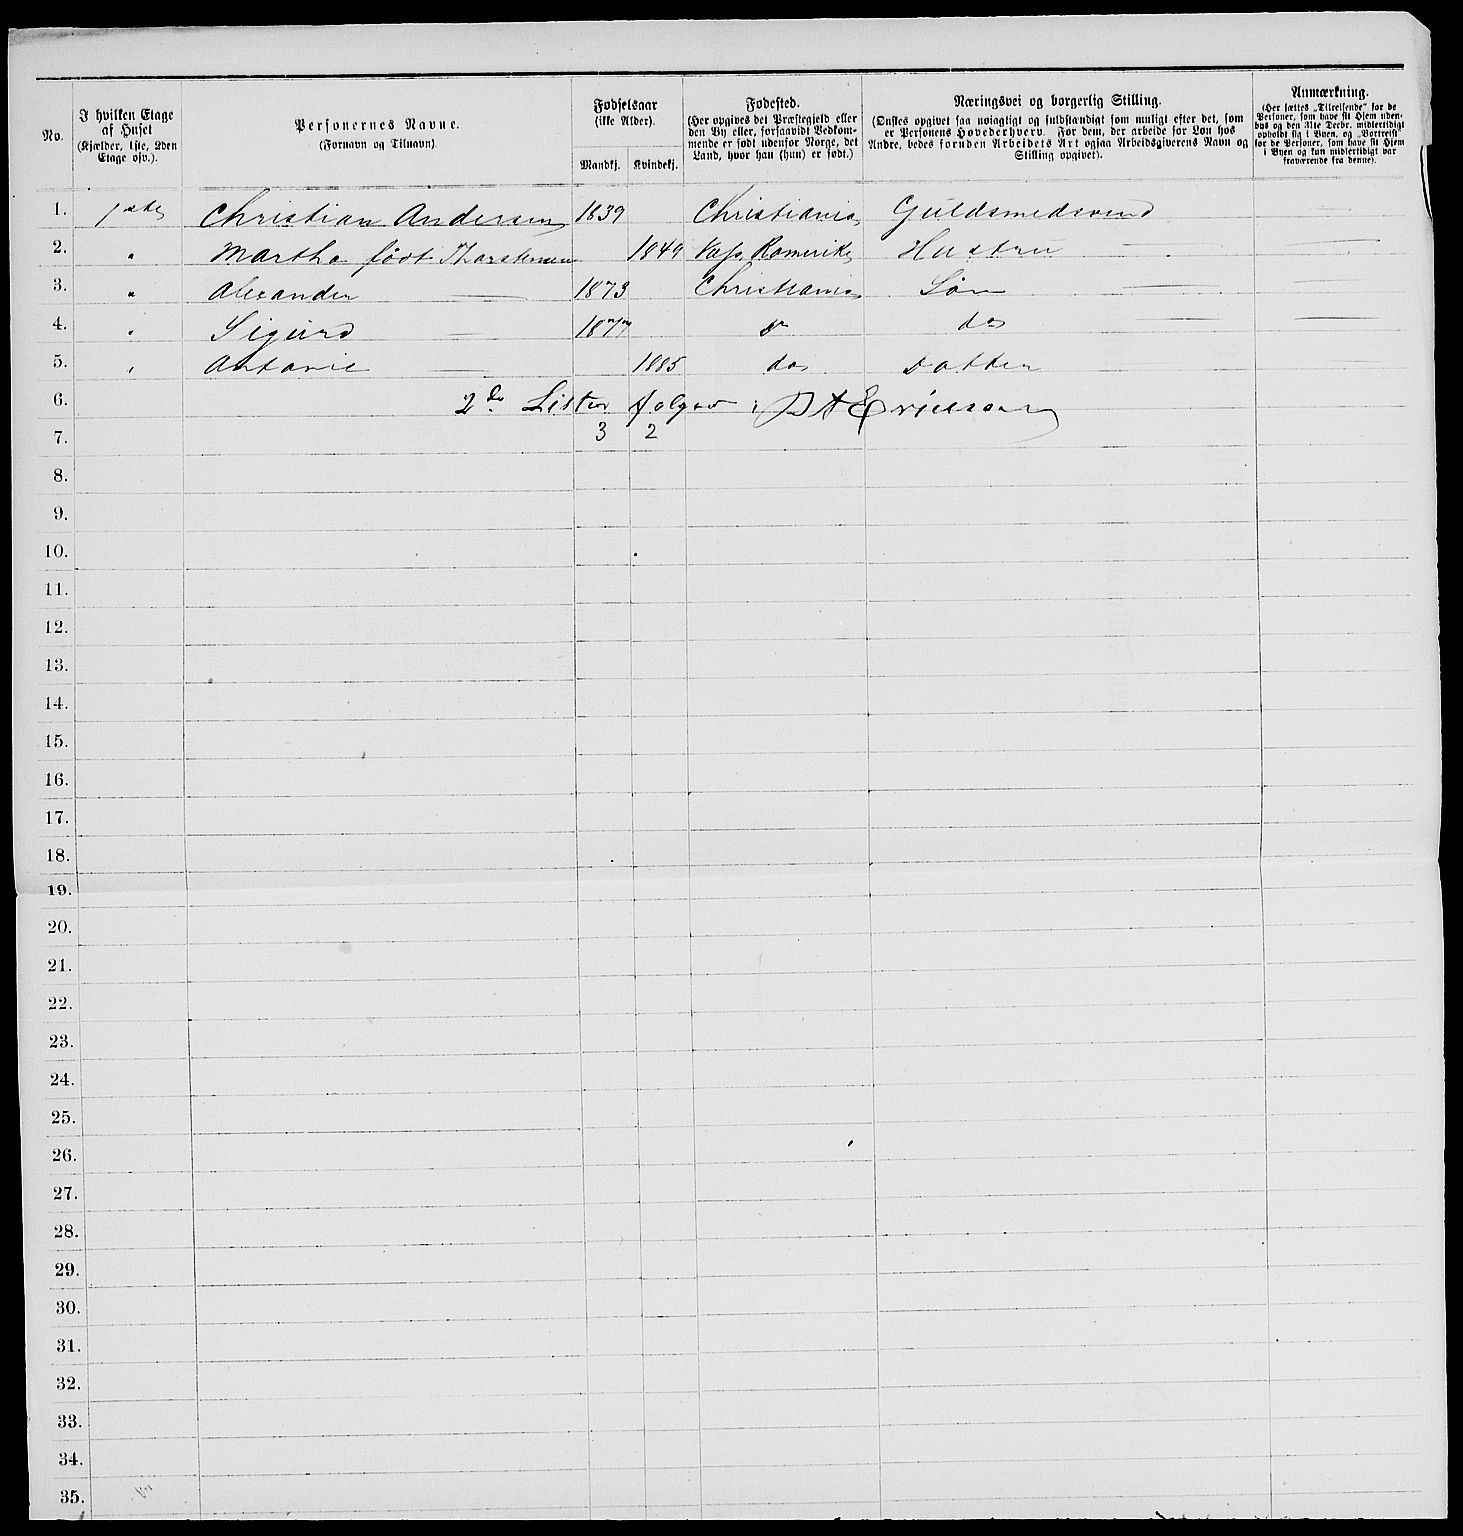 No.
I hvilken Etage af Huset
(Kjælder, 1ste, 2den Etage osv.).
Personernes Navne.
(Fornavn og Tilnavn)
Fødselsaar
(ikke Alder).
Mandkj. Kvindekj.
Fødested.
(Her opgives det Præstegjeld eller
den By eller, forsaavidt Vedkom-
mende er født udenfor Norge, det
Land, hvor han (hun) er født.)
Næringsvei og borgerlig Stilling.
(Ønskes opgivet saa nøiagtigt og fuldstændigt som muligt efter det, som
er Personens Hovederhverv. For dem, der arbeide for Løn hos
Andre, bedes foruden Arbeidets Art ogsaa Arbeidsgiverens Navn og
Stilling opgivet).
Anmærkning.
(Her sættes „Tilreisende" for de
Personer, som have sit Hjem uden-
bys og den 31te Decbr. midlertidigt
opholdt sig i Byen, og „Bortreist"
for de Personer, som have sit Hjem
i Byen og kun midlertidigt var
fraværende fra denne).
1. 1ste Christian Andersen 1839 Christiania Guldsmedsvend
2. " Martha født Thorstensen 1849 Romerike Hustru
3. " Alexander 1873 Christiania Søn
4. " Sigurd 1877 do do
5. " Antonie 1885 do Datter
6. 2de Lister følger
7. 3 2
8.
9.
10.
11.
12.
13.
14.
15.
16.
17.
18.
19.
20.
21.
22.
23.
24.
25.
26.
27.
28.
29.
30.
31.
32.
33.
34.
35.